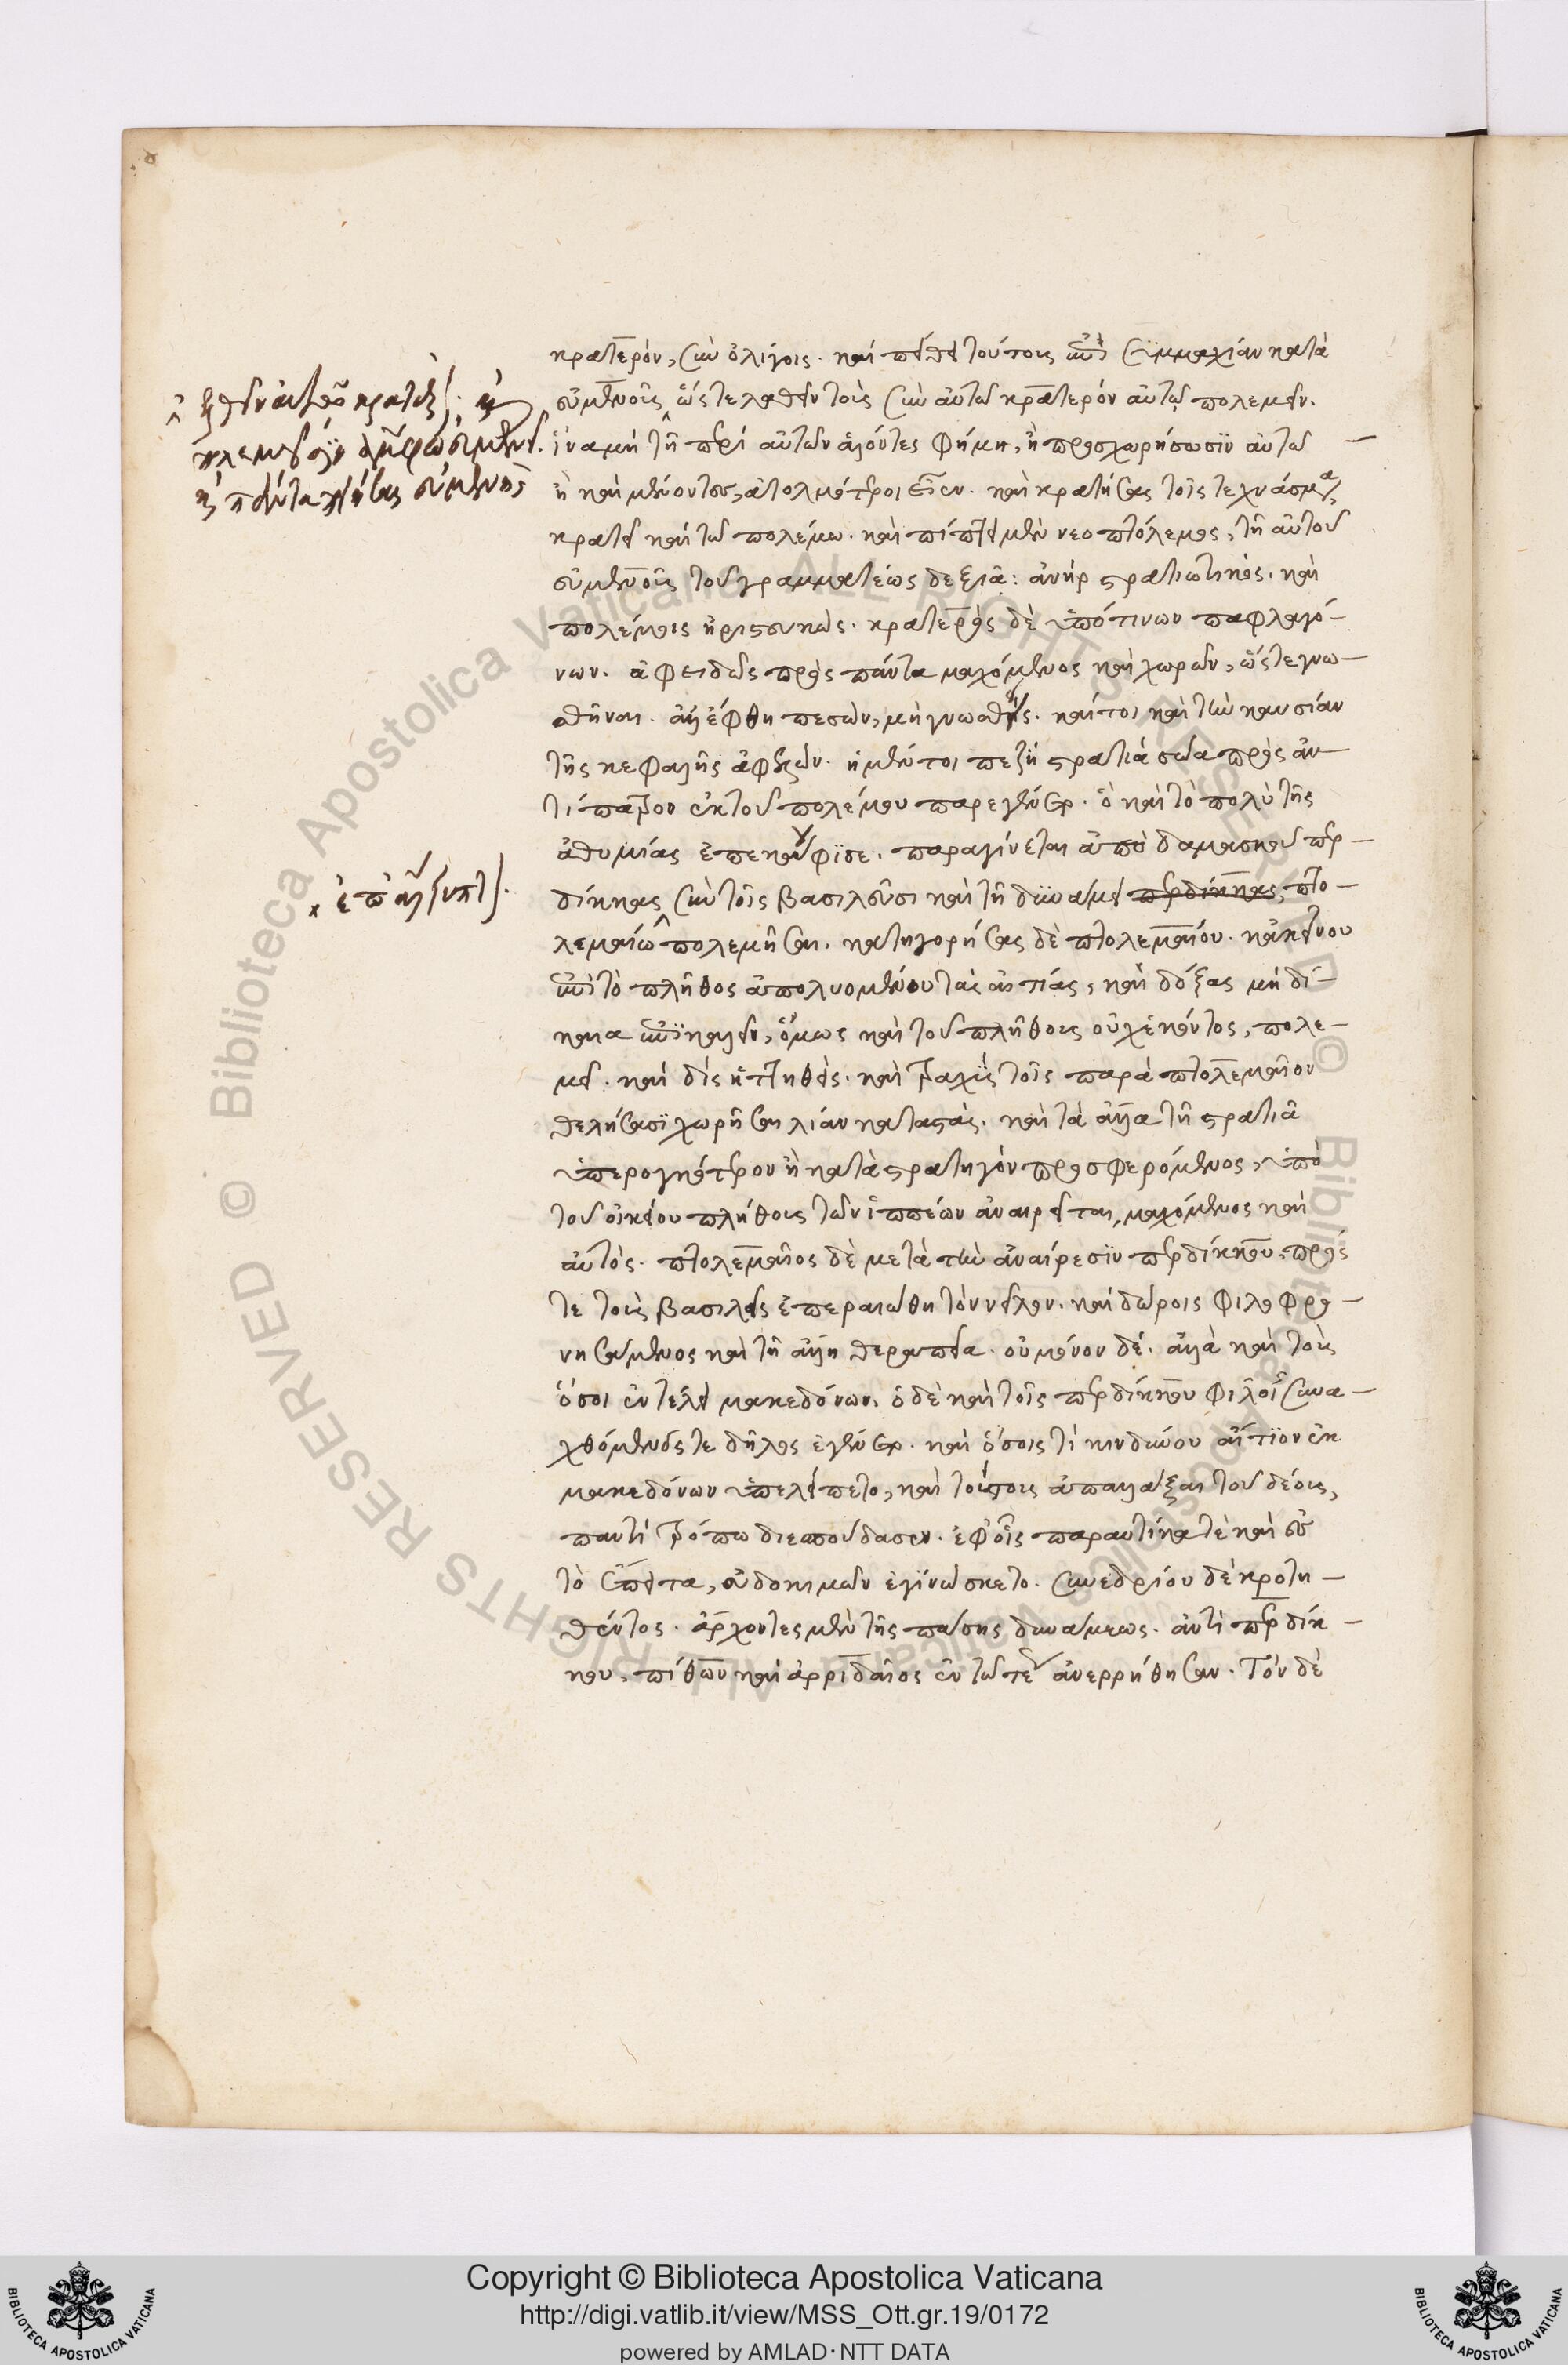 κρατερὸν, σὺν ὀλίγοις. καὶ πείθει τούτους ἐπὶ συμμαχίαν κατὰ
εὐμενοῦς ὥστε λαθεῖν τοὺς σὺν αὐτῶ κρατερὸν αὐτῷ πολεμεῖν.
ἵνα μὴ τῆ περὶ αὐτὸν ἁλόντες φήμη, ἢ προσχωρήσωσϊν αὐτῶ
ἢ καὶ μένοντες, ἀτολμότεροι εἶεν. καὶ κρατήσας τοῖς τεχνάσμα
κρατεῖ καὶ τῶ πολέμω. καὶ πίπτει μὲν νεοπτόλεμος, τῆ αὐτοῦ
εὐμενοῦς τοῦ γραμματέως δεξιᾶ: ἀνὴρ στρατιωτικὸς. καὶ
πολέμοις ἠριστευκὼς. κρατερὸς δὲ ὑπό τινων παφλαγό-
νων. ἀφειδῶς πρὸς πάντα μαχόμενος καὶ χωρῶν, ὥστε γνω-
σθῆναι. ἀλλ' ἔφθη πεσὼν, μὴ γνωσθείς. καίτοι καὶ τὴν καυσίαν
τῆς κεφαλῆς ἀφελών. ἡ μέντοι πεζὴ στρατιὰ σώα πρὸς ἀν-
τίπατρον ἐκ τοῦ πολέμου παρεγένετο. ὃ καὶ τὸ πολὺ τῆς
ἀθυμίας ἐπεκούφϊσε. παραγίνεται ἀπὸ δαμασκοῦ περ-
δίκκας σὺν τοῖς βασιλεῦσι καὶ τῆ δυνάμει περδίκκας, πτο-
λεμαίω πολεμῆσαι. κατηγορήσας δὲ πτολεμαίου. κἀκείνου
ἐπὶ τὸ πλῆθος ἀπολυομένου τὰς αἰτίας, καὶ δόξας μὴ δί-
καια ἐπϊκαλεῖν, ὅμως καὶ τοῦ πλήθους οὐχ ἑκόντος, πολε-
μεῖ. καὶ δὶς ἡττηθείς. καὶ τραχὺς τοῖς παρὰ πτολεμαῖον
θελήσασϊ χωρῆσαι λίαν καταστάς. καὶ τὰ ἄλλα τῆ στρατιᾶ
ὑπερογκότερον ἢ κατὰ στρατηγὸν προσφερόμενος, ὑπὸ
τοῦ οἰκείου πλήθους τῶν ἱππέων ἀναιρεῖται, μαχόμενος καὶ
αὐτὸς. πτολεμαῖος δὲ μετὰ τὴν ἀναίρεσϊν περδίκκου, πρός
τε τοὺς βασιλεῖς ἐπεραιώθη τὸν νεῖλον. καὶ δώροις φιλοφρο-
νησάμενος καὶ τῆ ἄλλη θεραπεία. οὐ μόνον δέ. ἀλλὰ καὶ τοὺς
ὅσοι ἐν τέλει μακεδόνων. ὁ δὲ καὶ τοῖς περδίκκου φίλοις συνα-
χθόμενός τε δῆλος ἐγένετο. καὶ ὅσοις τὶ κινδύνου αἴτϊον ἐκ
μακεδόνων ὑπελείπετο, καὶ τούτους ἀπαλλάξαι τοῦ δέους,
παντὶ τρόπω διεσπούδασεν. ἐφ' οἷς παραυτίκα τὲ καὶ εἰς
τὸ ἔπειτα, εὐδοκιμῶν ἐγίνωσκετο. συνεδρίου δὲ κροτη-
θέντος. ἄρχοντες μὲν τῆς πάσης δυνάμεως. ἀντὶ περδίκ-
κου, πίθων καὶ ἀρριδαῖος ἐν τῶ τε ἀνερρήθησαν. Τὸν δὲ
καὶ πάντα ποιήσας εὐμένης
Copyright © Biblioteca Apostolica Vaticana
http://digi.vatlib.it/view/MSS_Ott.gr.19/0172
powered by AMLAD·NTT DATA
BIBLIOTECA APOSTOLICA VATICANA
BIBLIOTECA APOSTOLICA VATICANA
© Biblioteca Apostolica Vaticana ALL RIGHTS RESERVED
© Biblioteca Apostolica Vaticana ALL RIGHTS RESERVED